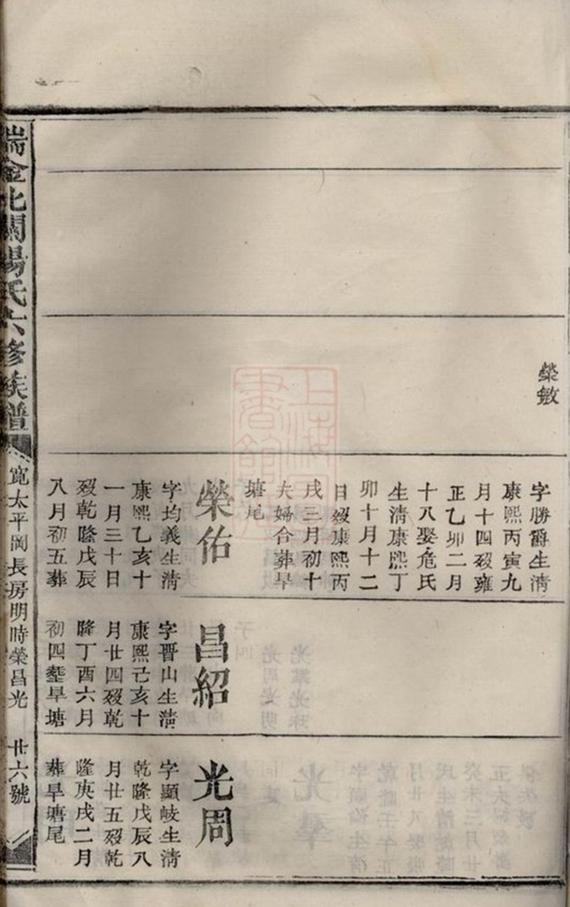 榮敏
字勝爵生清
康熙丙寅九
月十四歿雍
正乙卯二月
十八娶危氏
生清康熙丁
卯十月十二
日歿康熙丙
戌三月初十
夫婦合葬旱
塘尾
榮佑
字均義生清
康熙乙亥十
一月三十日
歿乾隆戊辰
八月初五葬
昌紹
字晋山生清
康熙己亥十
月廿四歿乾
隆丁酉六月
初四塟旱塘
光周
字顯岐生清
乾隆戊辰八
月廿五歿乾
隆庚戌二月
葬旱塘尾
瑞金北關楊氏六修族譜
寬太平岡長房明時榮昌光
廿六號
上海圖書館